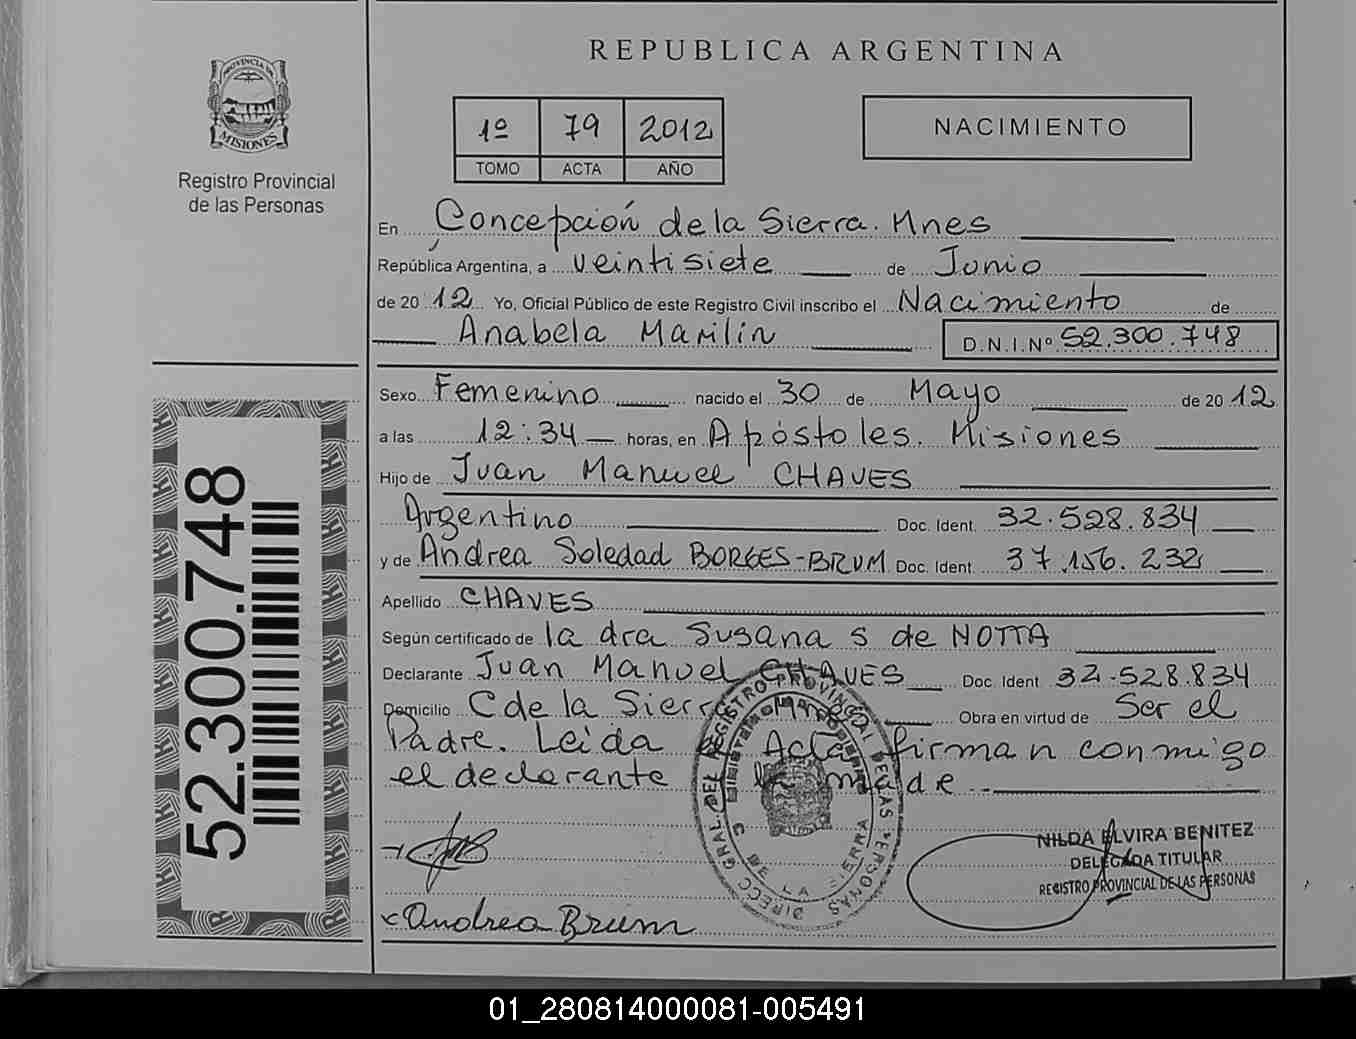 REPUBLICA ARGENTINA
PROVINCIA DE
MISIONES
Registro Provincial
de las Personas
1º 79 2012
TOMO ACTA AÑO
NACIMIENTO
En Concepción de la Sierra. Mnes
República Argentina, a veintisiete de Junio
de 2012 Yo, Oficial Público de este Registro Civil inscribo el Nacimiento de
Anabela Marilin D.N.I.Nº 52.300.748
Sexo Femenino nacido el 30 de Mayo de 2012
a las 12:34 horas, en Apóstoles. Misiones
Hijo de Juan Manuel CHAVES
Argentino Doc. Ident. 32.528.834
y de Andrea Soledad BORGES-BRUM Doc. Ident. 37.156.232
Apellido CHAVES
Según certificado de la dra Susana S de NOTTA
Declarante Juan Manuel CHAVES Doc. Ident 32.528.834
Domicilio C de la Sierra Obra en virtud de Ser el
Padre. Leida Acta firman conmigo
el declarante la madre
52.300.748
DIRECC GRAL. DEL REGISTRO PROVINCIAL DE LAS PERSONAS
C DE LA SIERRA
NILDA ELVIRA BENITEZ
DELEGADA TITULAR
REGISTRO PROVINCIAL DE LAS PERSONAS
x Andrea Brum
01_280814000081-005491